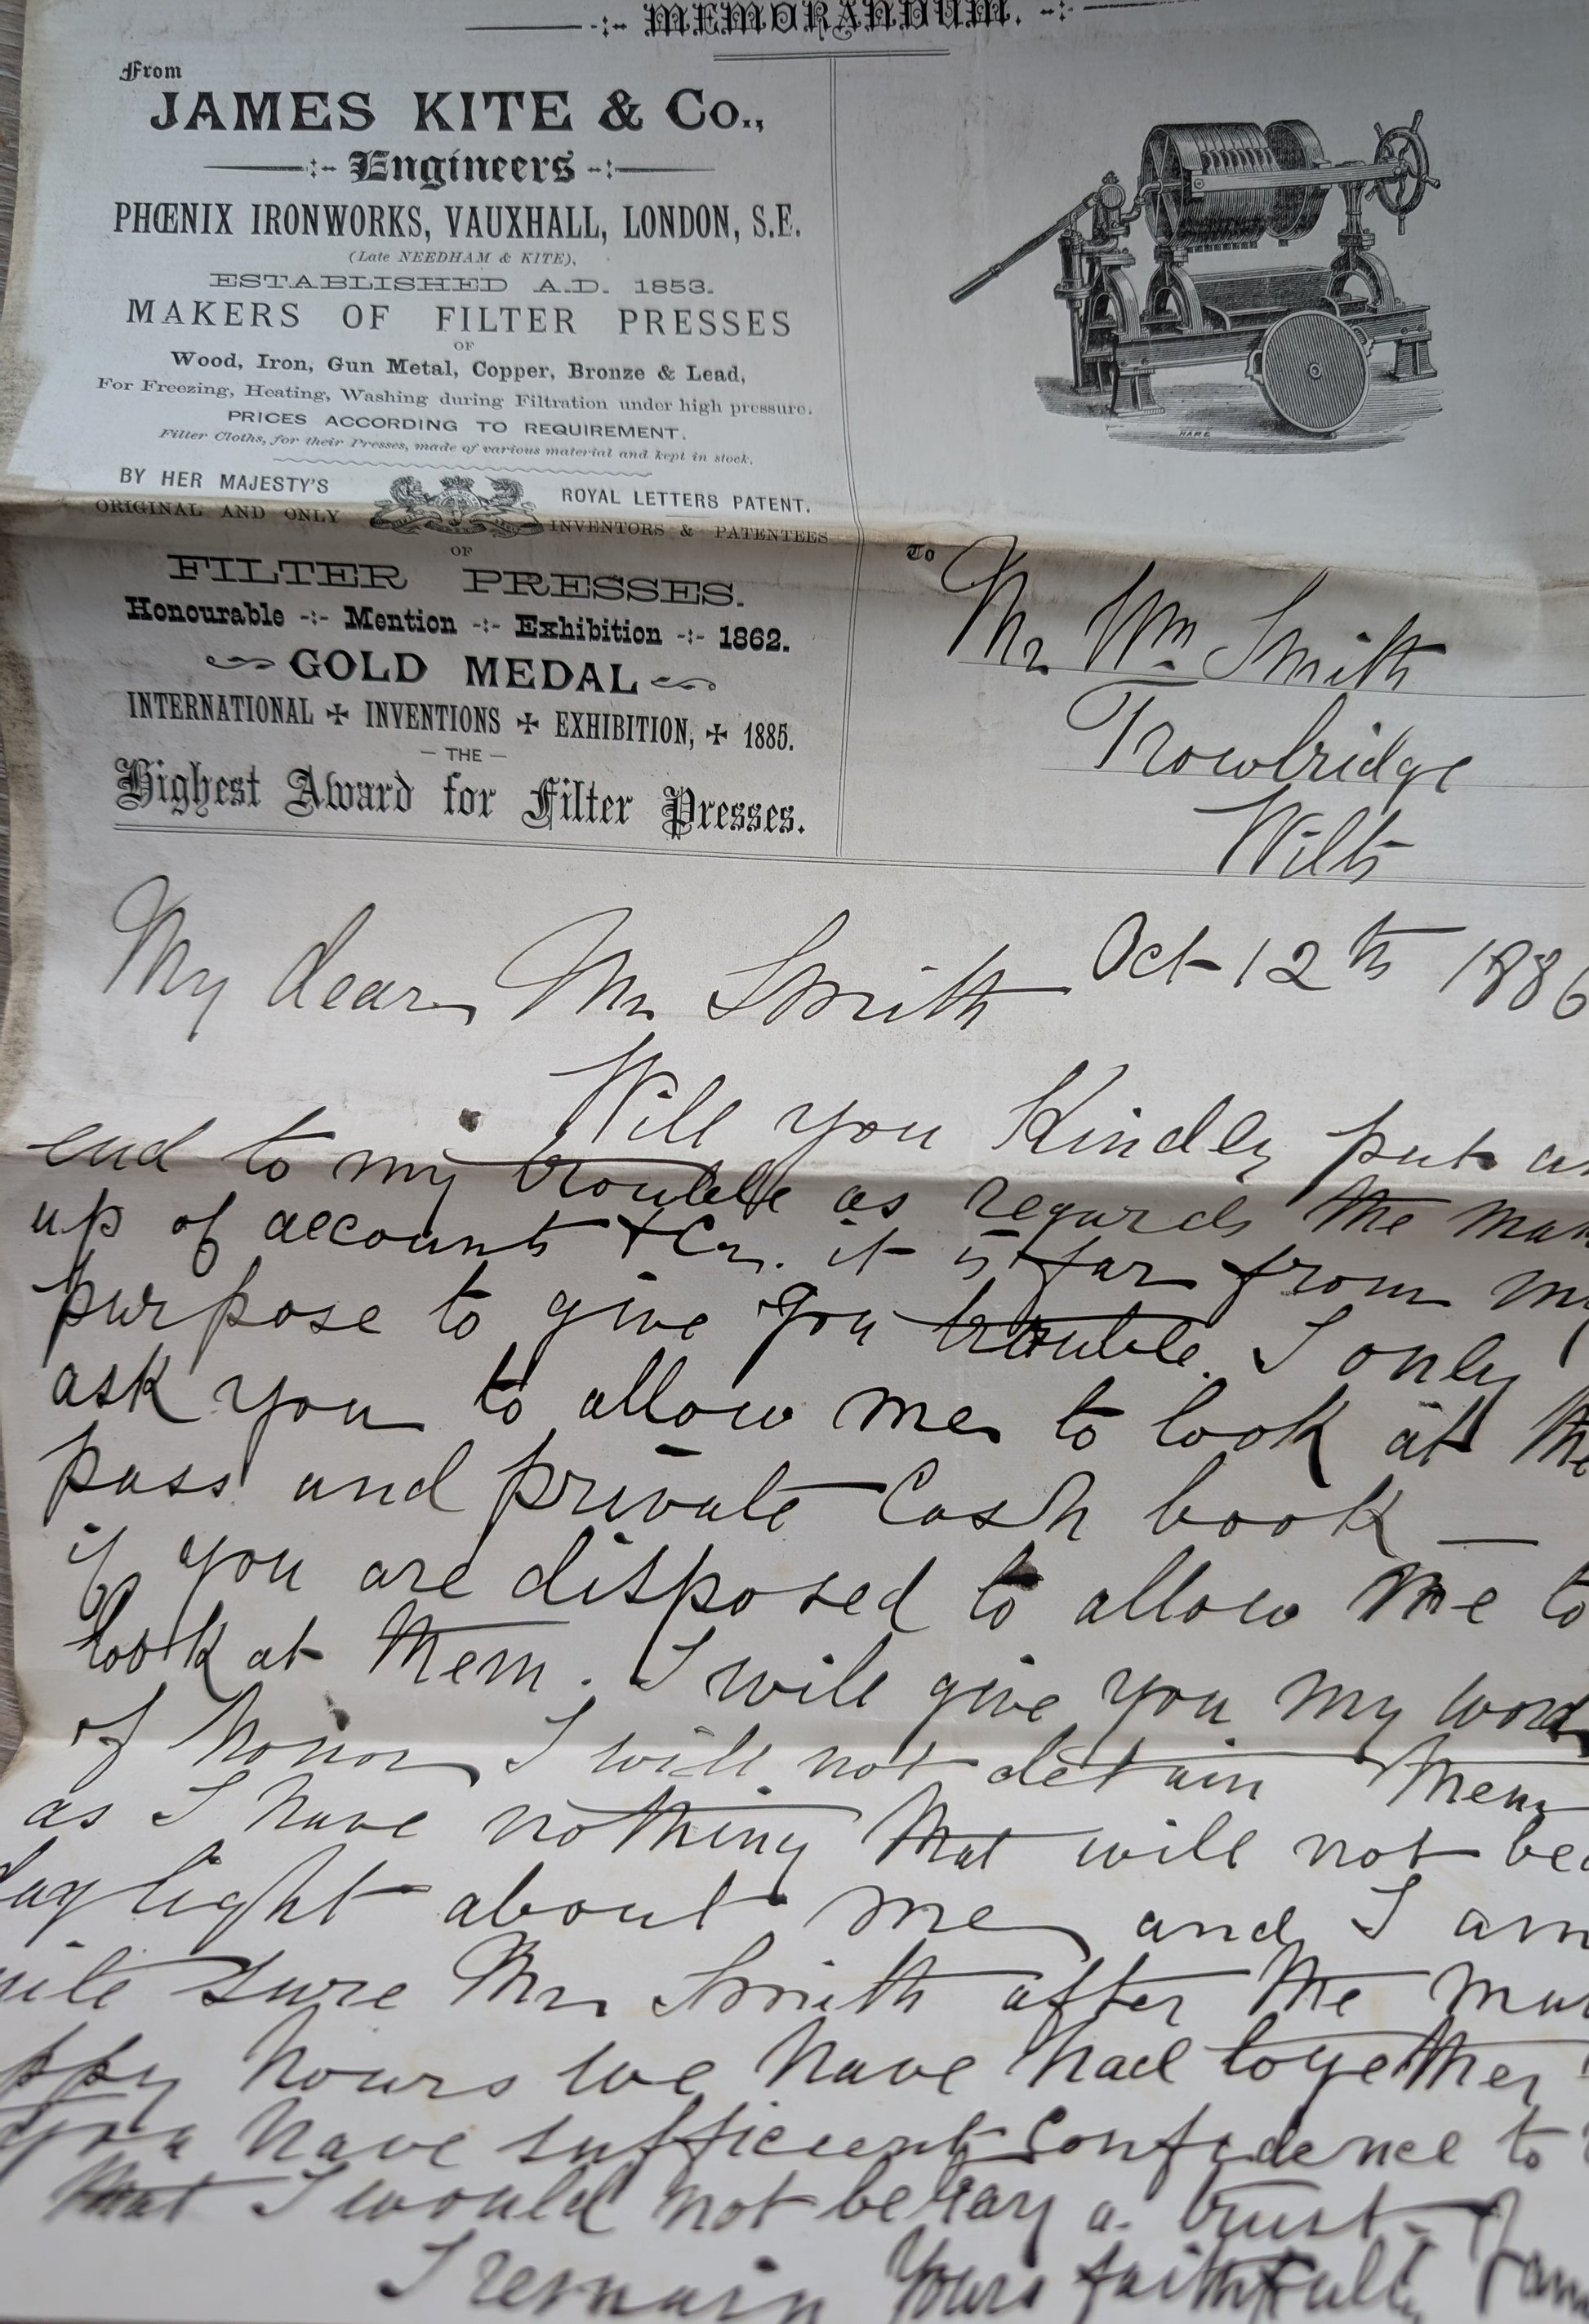 -:- MEMORANDUM. -:-
From
JAMES KITE & Co.,
-:- Engineers -:-
PHŒNIX IRONWORKS, VAUXHALL, LONDON, S.E.
(Late NEEDHAM & KITE),
ESTABLISHED A.D. 1853.
MAKERS OF FILTER PRESSES
OF
Wood, Iron, Gun Metal, Copper, Bronze & Lead,
For Freezing, Heating, Washing during Filtration under high pressure.
PRICES ACCORDING TO REQUIREMENT.
Filter Cloths, for their Presses, made of various material and kept in stock.
BY HER MAJESTY'S ROYAL LETTERS PATENT.
ORIGINAL AND ONLY INVENTORS & PATENTEES
OF
FILTER PRESSES.
Honourable -:- Mention -:- Exhibition -:- 1862.
GOLD MEDAL
INTERNATIONAL ✠ INVENTIONS ✠ EXHIBITION, ✠ 1885.
— THE —
Highest Award for Filter Presses.
HARE
To Mr Wm Smith
Trowbridge
Wilts
Oct 12th 1886
My dear Mr Smith
Will you Kindly put
end to my trouble as regards the
up of accounts &c. it is far from my
purpose to give you trouble. I only
ask you to allow me to look at the
pass and private Cash book —
if you are disposed to allow me to
look at them. I will give you my word
of honor I will not detain them
as I have nothing that will not
light about me and I am
sure Mr Smith after the
hours we have had together
you have sufficient Confidence to
that I would not betray a trust.
I remain Yours faithfully